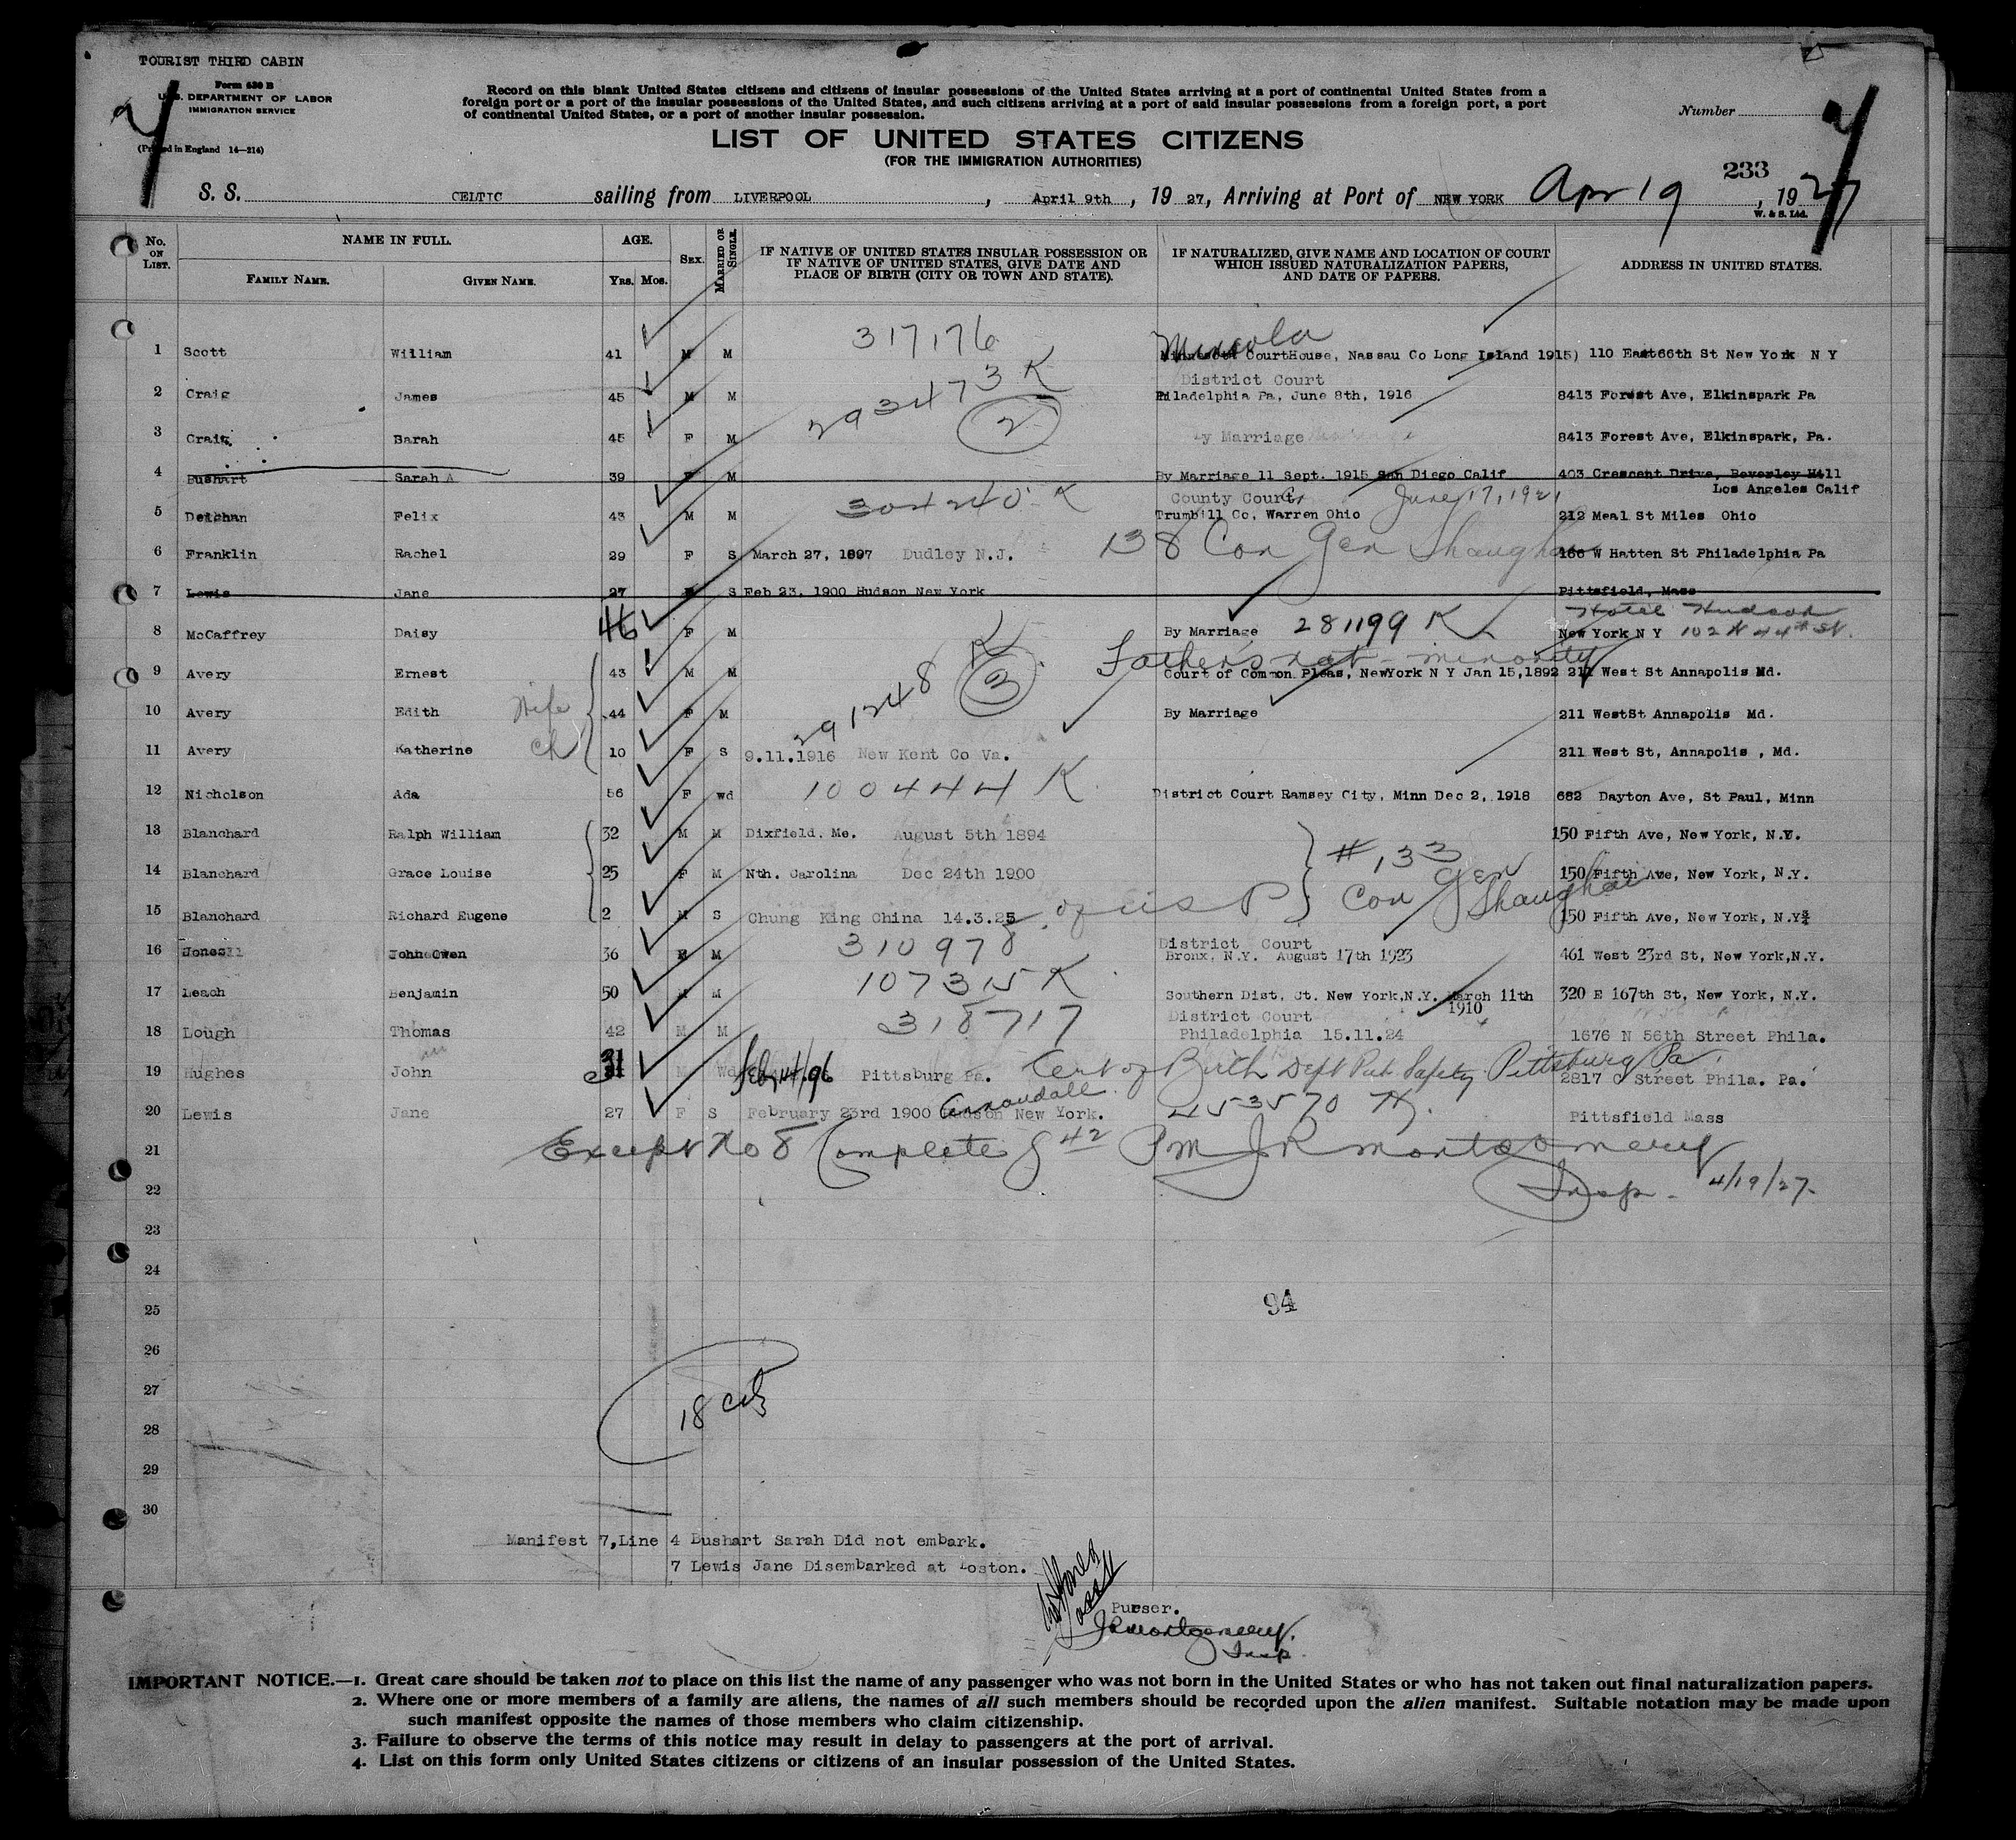 TOURIST THIRD CABIN
Form 630 B
U.S. DEPARTMENT OF LABOR
IMMIGRATION SERVICE
(Printed in England 14—214)
Record on this blank United States citizens and citizens of insular possessions of the United States arriving at a port of continental United States from a
foreign port or a port of the insular possessions of the United States, and such citizens arriving at a port of said insular possessions from a foreign port, a port
of continental United States, or a port of another insular possession.
Number
LIST OF UNITED STATES CITIZENS
(FOR THE IMMIGRATION AUTHORITIES)
233
S. S. CELTIC sailing from LIVERPOOL, April 9th, 19 27, Arriving at Port of NEW YORK Apr 19, 1927
W. & S. Ltd.
No. ON LIST. NAME IN FULL. AGE. SEX. MARRIED OR SINGLE. IF NATIVE OF UNITED STATES INSULAR POSSESSION OR IF NATIVE OF UNITED STATES, GIVE DATE AND PLACE OF BIRTH (CITY OR TOWN AND STATE). IF NATURALIZED, GIVE NAME AND LOCATION OF COURT WHICH ISSUED NATURALIZATION PAPERS, AND DATE OF PAPERS. ADDRESS IN UNITED STATES.
FAMILY NAME. GIVEN NAME. YRS. MOS.
317176 Mineola
1 Scott William 41 M M CourtHouse, Nassau Co Long Island 1915) 110 East66th St New York N Y
293473 K District Court
2 Craig James 45 M M Philadelphia Pa, June 8th, 1916 8413 Forest Ave, Elkinspark Pa
2
3 Craig Sarah 45 F M By Marriage 8413 Forest Ave, Elkinspark, Pa.
4 Bushart Sarah A 39 F M By Marriage 11 Sept. 1915 San Diego Calif 403 Crescent Drive, Beverley Hill
Los Angeles Calif
304240 K County Court June 17, 1921
5 Deichan Felix 43 M M Trumbill Co, Warren Ohio 212 Meal St Miles Ohio
138 Con Gen Shanghai
6 Franklin Rachel 29 F S March 27, 1897 Dudley N.J. 166 W Hatten St Philadelphia Pa
7 Lewis Jane 27 F S Feb 23, 1900 Hudson New York Pittsfield, Mass
Hotel Hudson
8 McCaffrey Daisy 46 F M By Marriage 281199 K New York N Y 102 W 44th St.
Father's nat - minority
9 Avery Ernest 43 M M Court of Common Pleas, NewYork N Y Jan 15,1892 211 West St Annapolis Md.
291248 K 3
10 Avery Edith Wife 44 F M By Marriage 211 WestSt Annapolis Md.
11 Avery Katherine ch 10 F S 9.11.1916 New Kent Co Va. 211 West St, Annapolis , Md.
100444 K
12 Nicholson Ada 56 F wd District Court Ramsey City, Minn Dec 2, 1918 682 Dayton Ave, St Paul, Minn
13 Blanchard Ralph William 32 M M Dixfield. Me. August 5th 1894 150 Fifth Ave, New York, N.Y.
# 133
14 Blanchard Grace Louise 25 F M Nth. Carolina Dec 24th 1900 150 Fifth Ave, New York, N.Y.
Con Gen Shanghai
15 Blanchard Richard Eugene 2 M S Chung King China 14.3.25 of cis P 150 Fifth Ave, New York, N.Y
310978 District Court
16 Jones John Owen 36 M M Bronx, N.Y. August 17th 1923 461 West 23rd St, New York,N.Y.
107315 K
17 Leach Benjamin 50 M M Southern Dist. Ct. New York,N.Y. March 11th 320 E 167th St, New York, N.Y.
1910
318717 District Court
18 Lough Thomas 42 M M Philadelphia 15.11.24 1676 N 56th Street Phila.
19 Hughes John 31 M Wd Feb, 14, 96 Pittsburg Pa. Cert of Birth Dept Pub Safety Pittsburg Pa.
2817 C Street Phila. Pa.
Annandall
20 Lewis Jane 27 F S February 23rd 1900 Hudson New York. 453570 Pittsfield Mass
21 Except No 8 Complete 8 42 PM J R Montgomery
22 Insp - 4/19/27-
23
24
25 94
26
27
28 18 cits
29
30
Manifest 7,Line 4 Bushart Sarah Did not embark.
7 Lewis Jane Disembarked at Boston.
Purser.
J R Montgomery.
Insp.
IMPORTANT NOTICE.—1. Great care should be taken not to place on this list the name of any passenger who was not born in the United States or who has not taken out final naturalization papers.
2. Where one or more members of a family are aliens, the names of all such members should be recorded upon the alien manifest. Suitable notation may be made upon
such manifest opposite the names of those members who claim citizenship.
3. Failure to observe the terms of this notice may result in delay to passengers at the port of arrival.
4. List on this form only United States citizens or citizens of an insular possession of the United States.